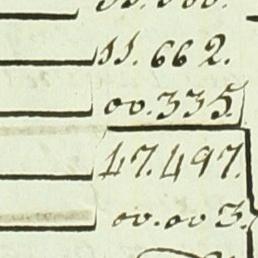 11.662.
00.335.
47.497.
00.003.